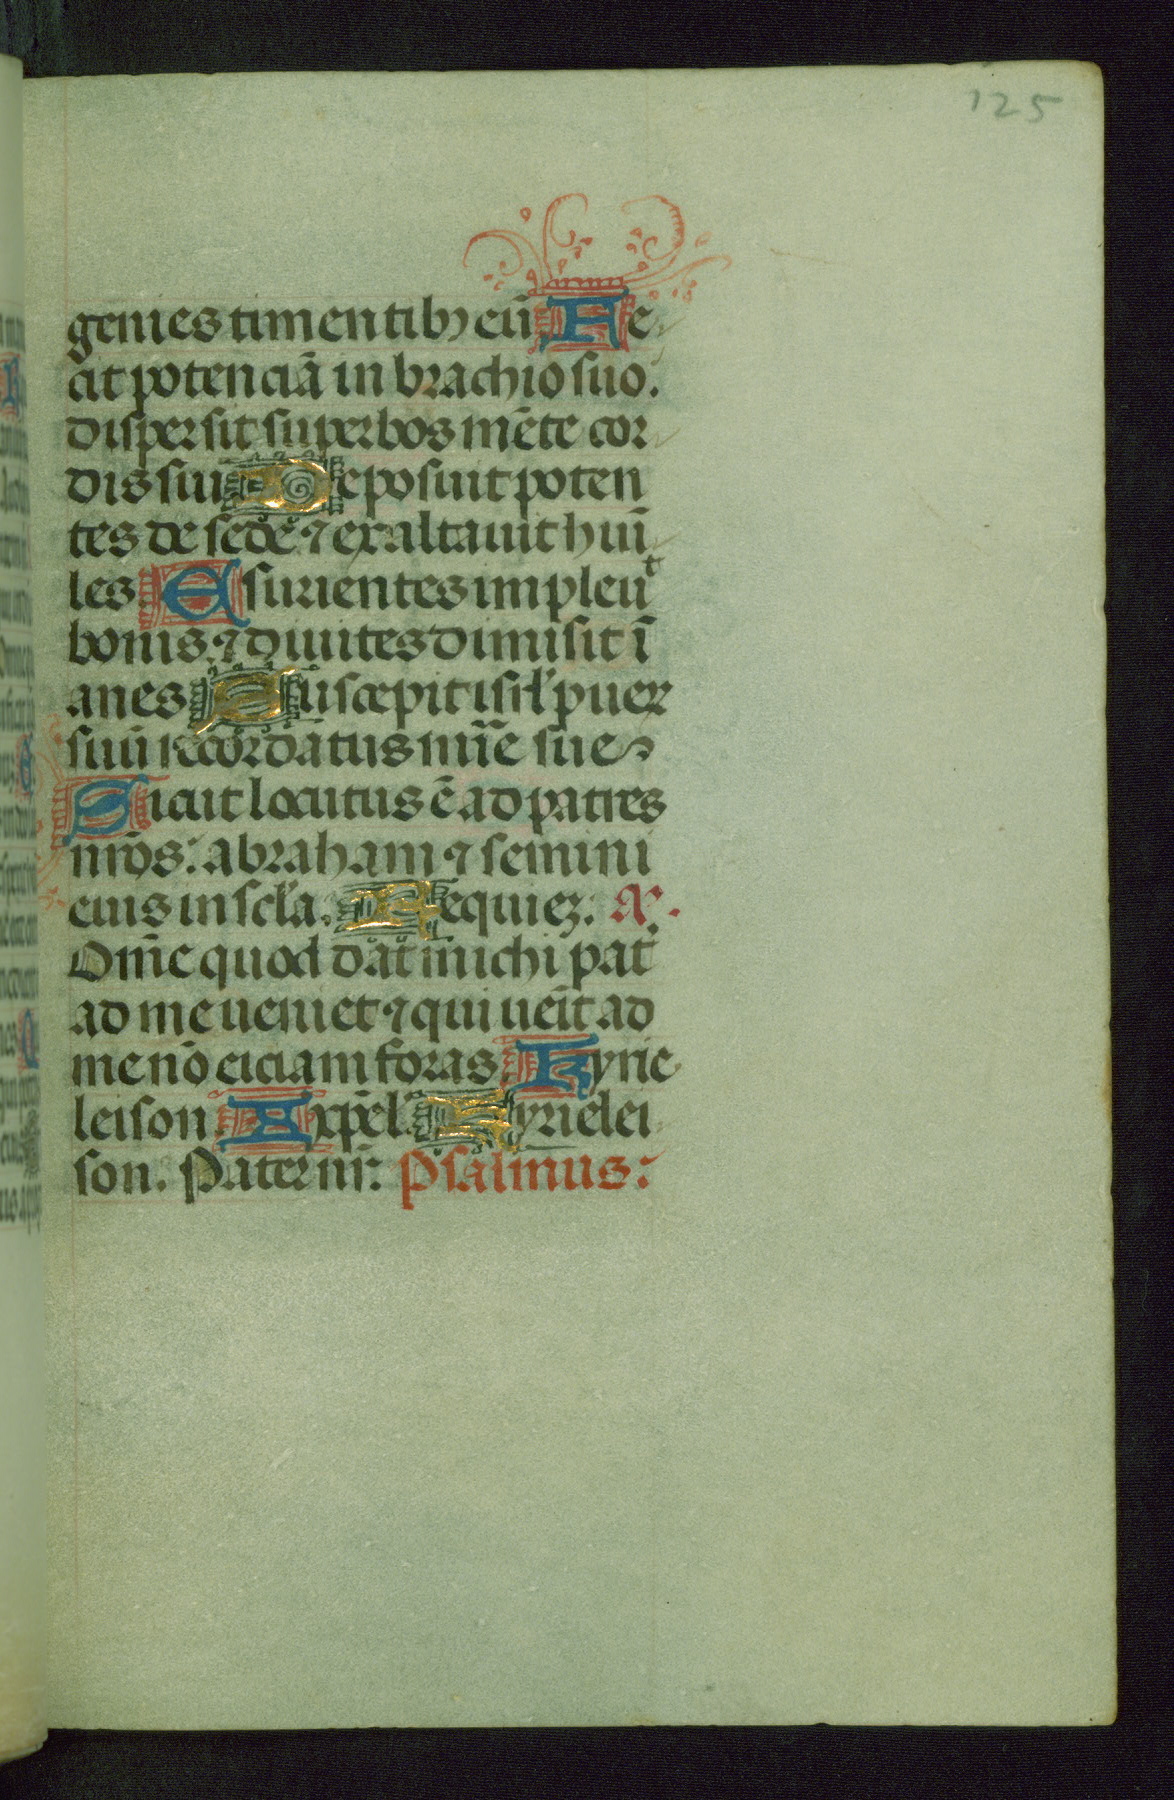 125
genies timentibꝫ eũ Fe
cit potenciã in brachio suo.
dispersit superbos mẽte cor
dis sui Deposuit poten
tes de sede ⁊ exaltauit hũi
les Esurientes impleuᵗ
bonis ⁊ diuites dimisit ĩ
anes Suscepit isrl̃ puer
suũ recordatus mĩe sue
Sicut locutus ẽ ad patres
nr̃os: abraham ⁊ semini
eius in scl̃a. Requieꝫ. Aͣ.
Om̃e quod dat michi pat̃
ad me ueniet ⁊ qui uẽit ad
me nõ eiciam foras Kyrie
leison Xp̃el. Kyrielei
son. Pater nr̃: Psalmus: